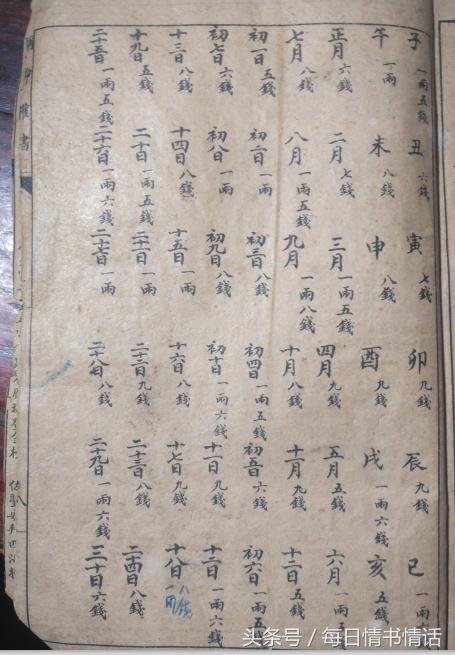 子 一兩五錢 丑 六錢 寅 七錢 卯 九錢 辰 九錢 巳 一兩
午 一兩 未 八錢 申 八錢 酉 九錢 戌 一兩六錢 亥 五錢
正月 六錢 二月 七錢 三月 一兩五錢 四月 九錢 五月 五錢 六月 一兩五
七月 八錢 八月 一兩五錢 九月 一兩八錢 十月 八錢 十一月 九錢 十二月 五錢
初一日 五錢 初二日 一兩 初三日 八錢 初四日 一兩五錢 初五日 六錢 初六日 一兩五
初七日 六錢 初八 一兩 初九日 八錢 初十日 一兩六錢 十一日 九錢 十二日 一兩六錢
十三日 八錢 十四日 八錢 十五日 一兩 十六日 八錢 十七日 九錢 十八日 八錢 一兩
十九日 五錢 二十日 一兩五錢 二十一日 一兩 二十二日 九錢 二十三日 八錢 二十四日 八錢
二十五日 一兩五錢 二十六日 一兩六錢 二十七日 一兩 二十八日 八錢 二十九日 一兩六錢 三十日 六錢
書
头条号 / 每日情书情话